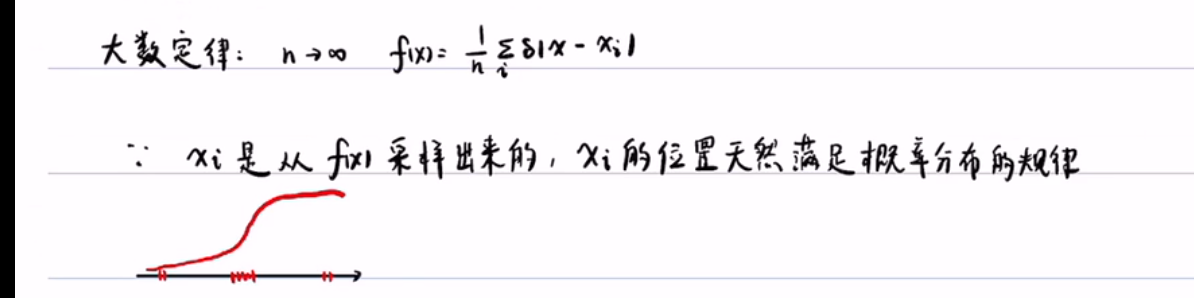 大数定律： n→∞ f(x)= 1/n Σ_i δ(x - x_i)
∵ x_i 是从 f(x) 采样出来的，x_i 的位置天然满足概率分布的规律